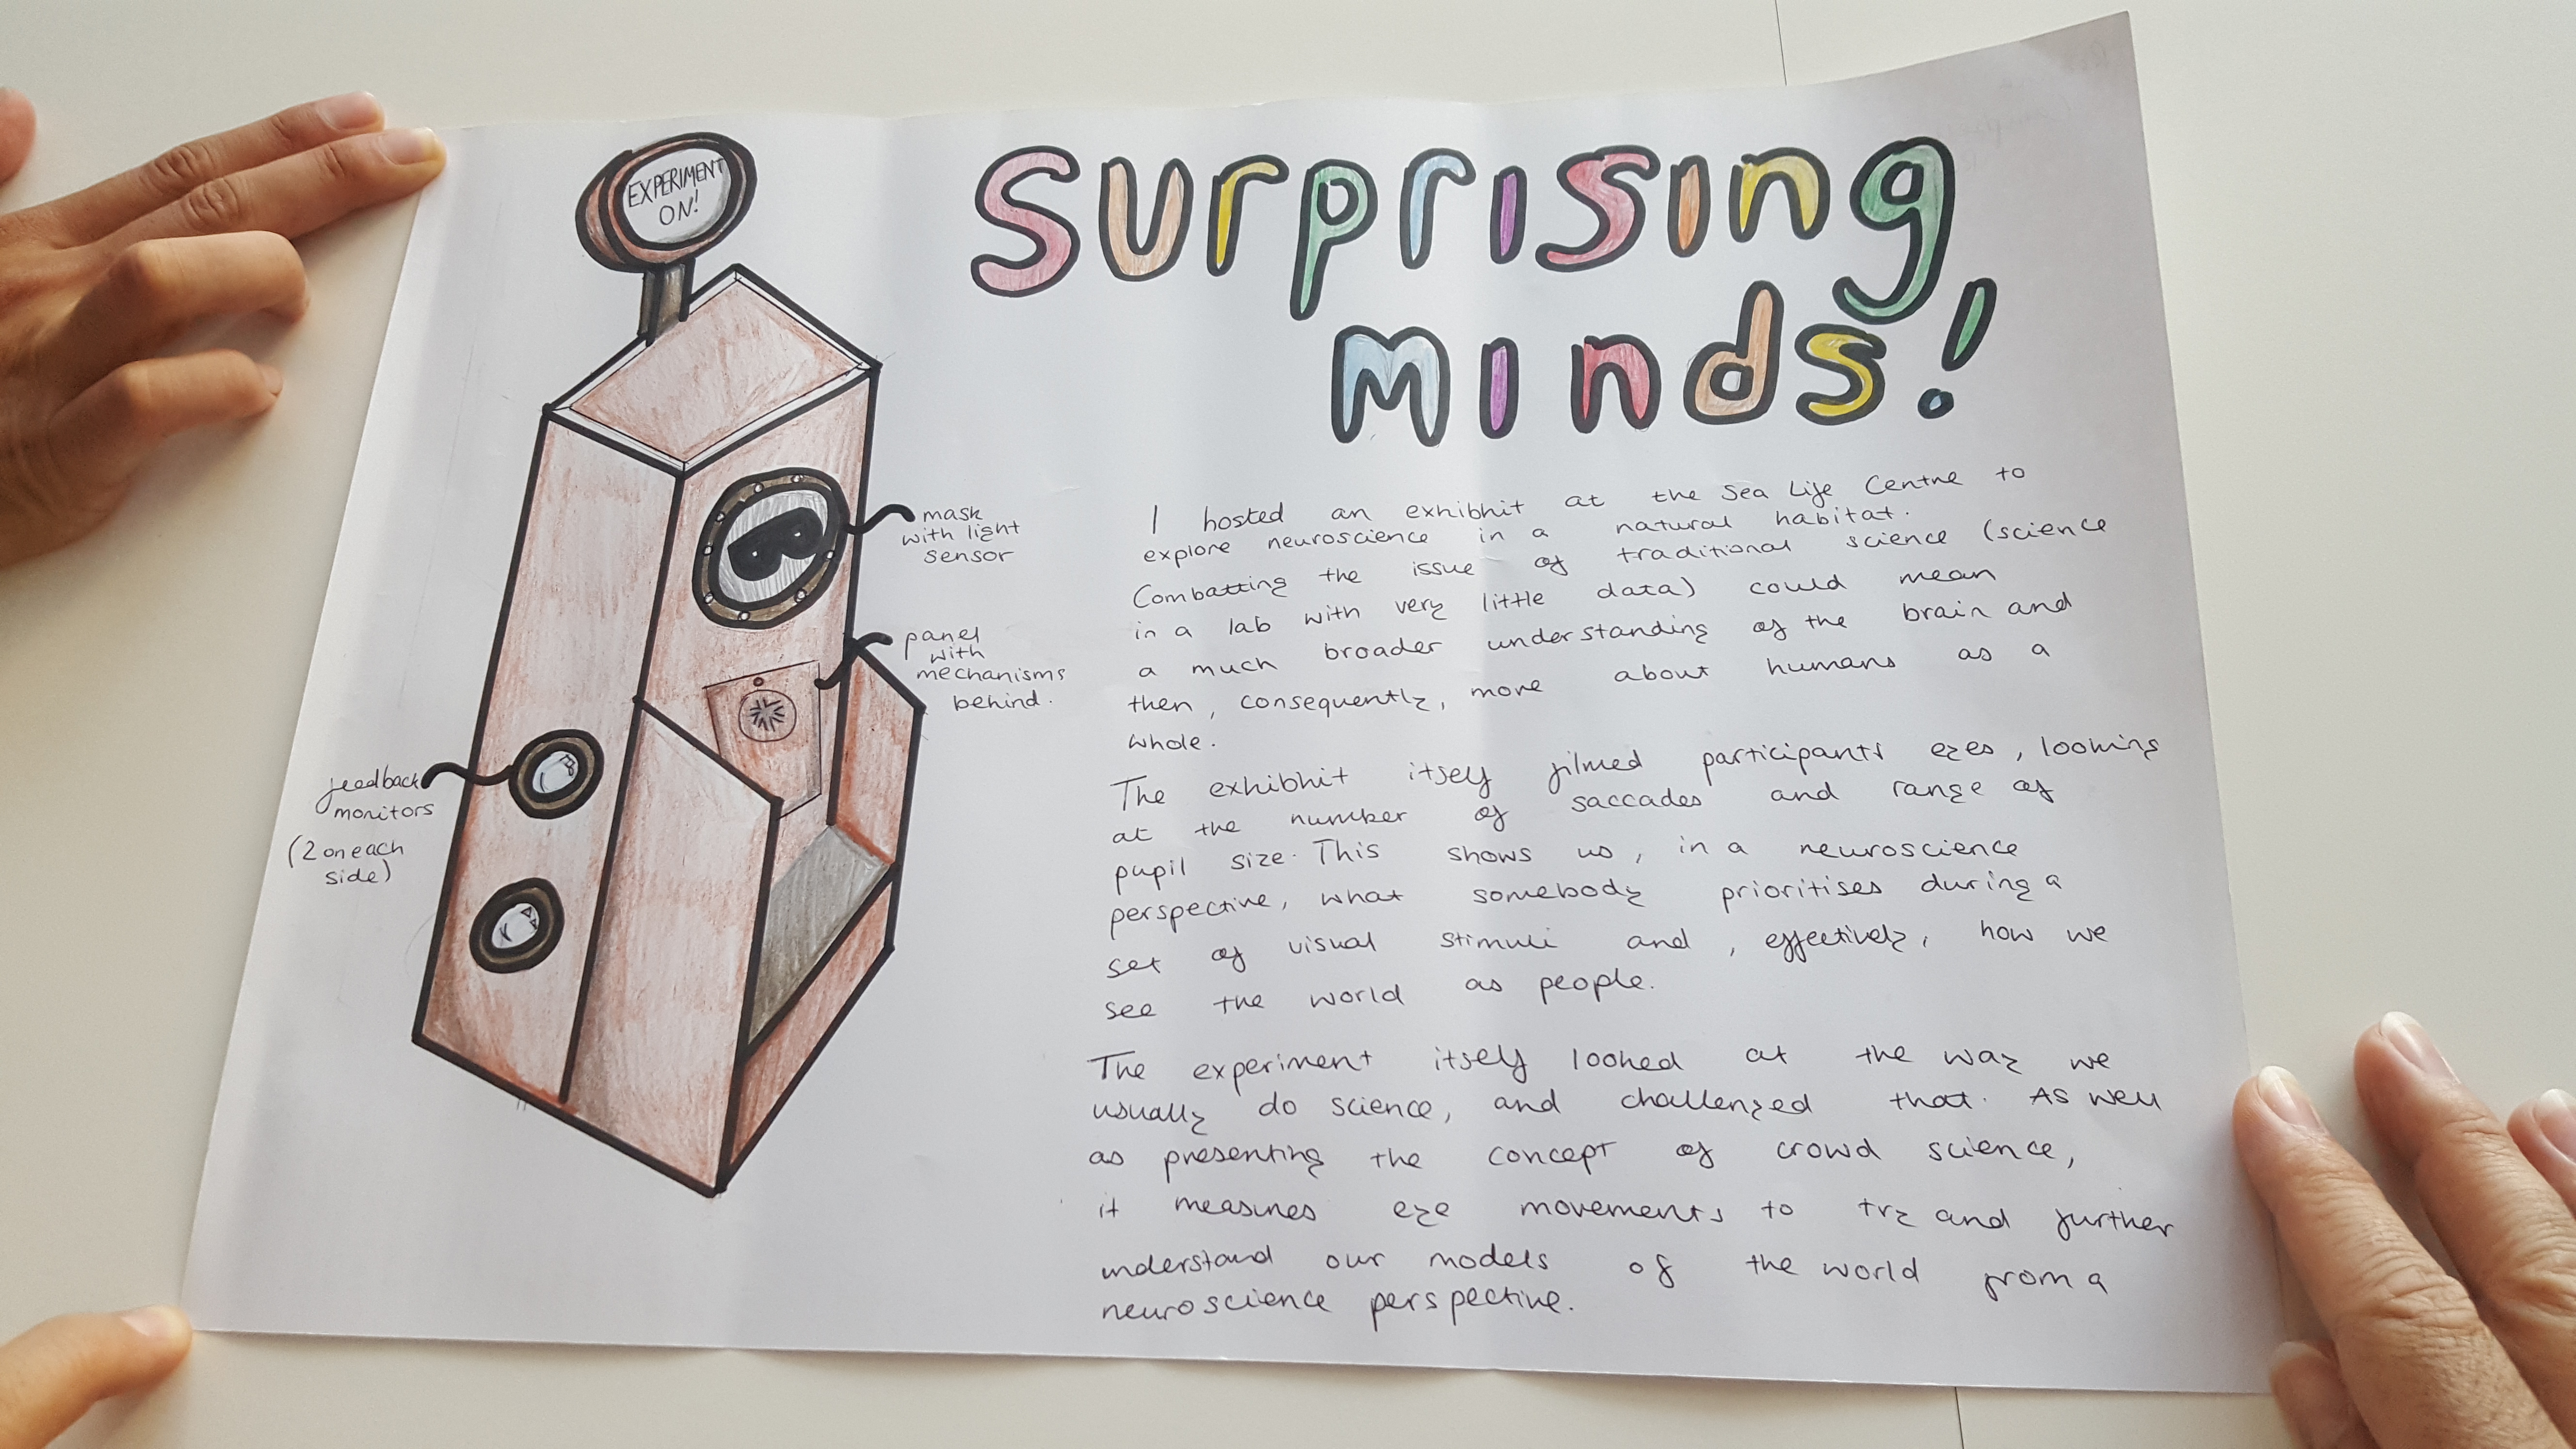 EXPERIMENT
ON!
surprising
minds!
mask
with light
sensor
panel
with
mechanisms
behind.
feedback
monitors
(2 on each
side)
I hosted an exhibhit at the Sea Life Centre to
explore neuroscience in a natural habitat.
Combatting the issue of traditional science (science
in a lab with very little data) could mean
a much broader understanding of the brain and
then, consequently, more about humans as a
whole.
The exhibhit itself filmed participants eyes, looking
at the number of saccades and range of
pupil size. This shows us, in a neuroscience
perspective, what somebody prioritises during a
set of visual stimuli and, effectively, how we
see the world as people.
The experiment itself looked at the way we
usually do science, and challenged that. As well
as presenting the concept of crowd science,
it measures eye movements to try and further
understand our models of the world from a
neuroscience perspective.